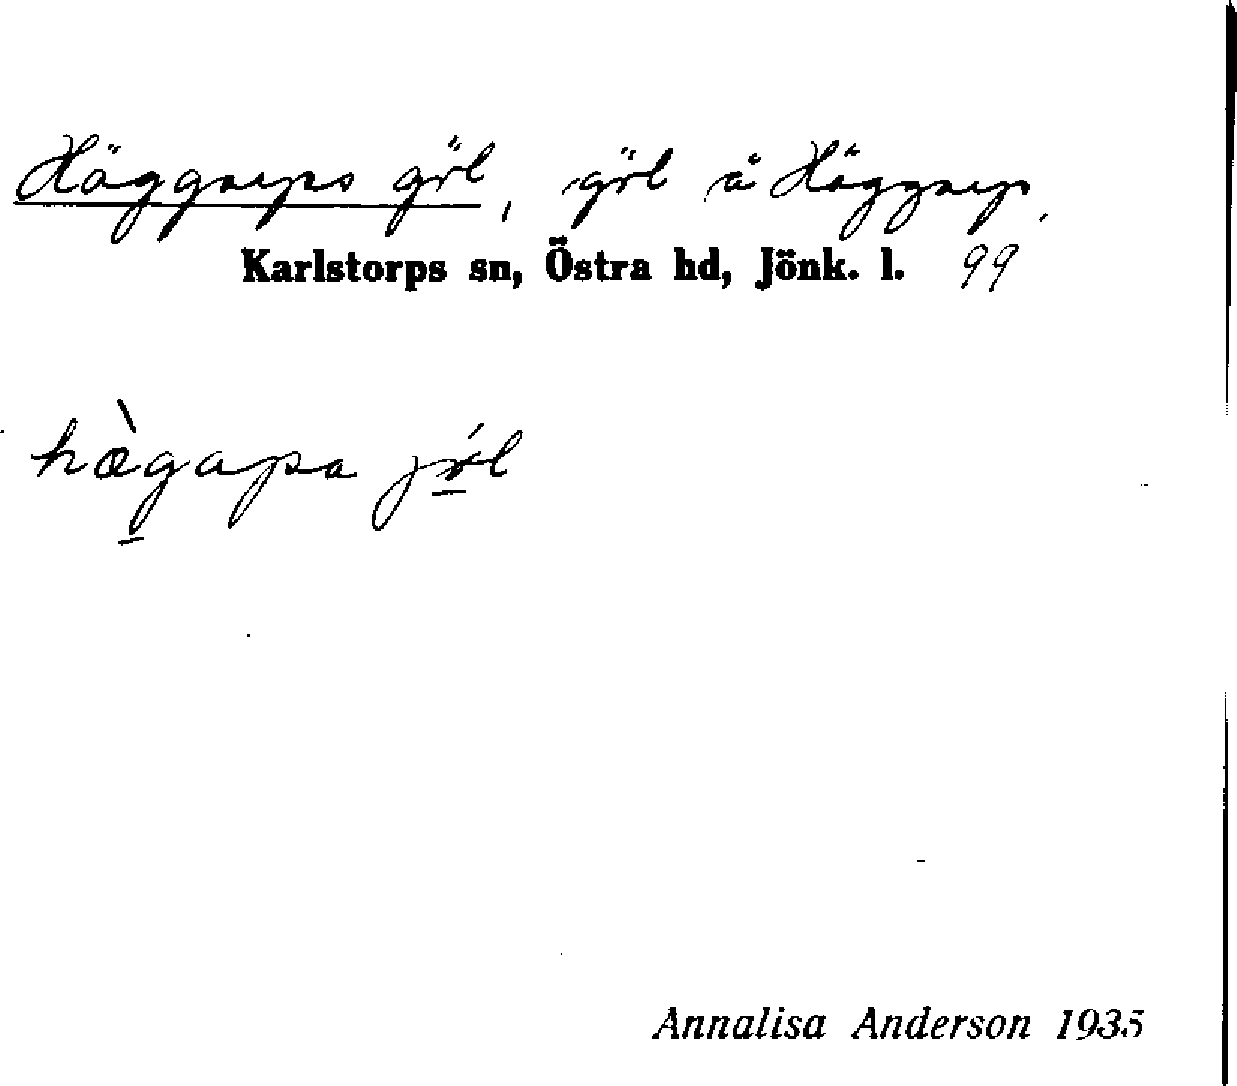 Häggarps göl, göl å Häggarp.
Karlstorps sn, Östra hd, Jönk. l. 99
hæ̀gapa jö́l
Annalisa Anderson 1935